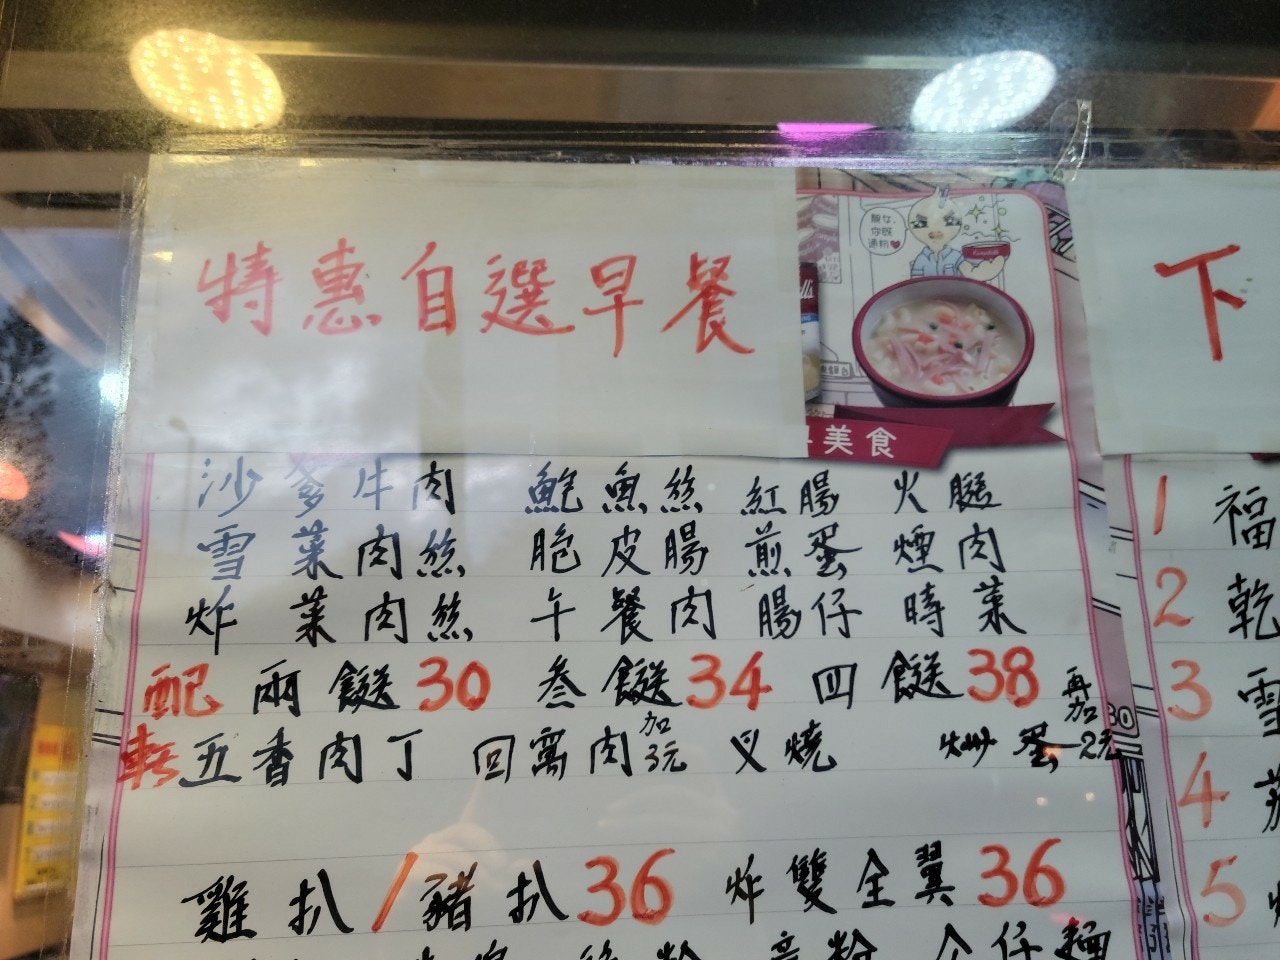 特惠自選早餐
靚女,
你既
通粉
美食
沙爹牛肉 鮑魚絲 紅腸 火腿
雪菜肉絲 脆皮腸 煎蛋 煙肉
炸菜肉絲 午餐肉 腸仔 時菜
配兩餸30 叁餸34 四餸38
轉五香肉丁 回窩肉加3元 叉燒 炒蛋再加2元
雞扒/豬扒36 炸雙全翼36
下
1 福
2 乾
3 雪
4
5